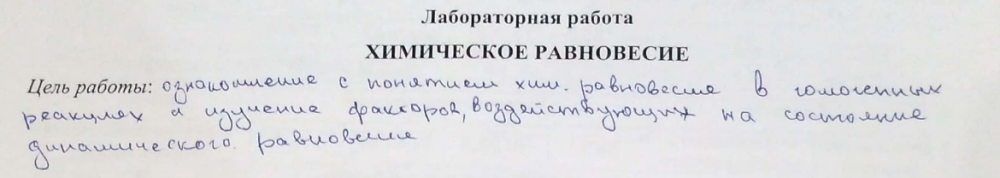 Лабораторная работа
ХИМИЧЕСКОЕ РАВНОВЕСИЕ
Цель работы: ознакомление с понятием хим. равновесие в гомогенных
реакциях и изучение факторов, воздействующих на состояние
динамического. равновесие